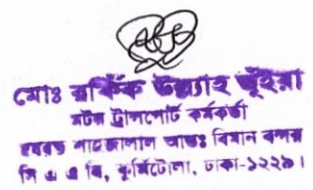 মোঃ রফিক উল্ল্যাহ ভূঁইয়া
মটস ট্রান্সপোর্ট কর্মকর্তা
হযরত শাহজালাল আন্তঃ বিমান বন্দর
সি এ এ বি, কুর্মিটোলা, ঢাকা-১২২৯।